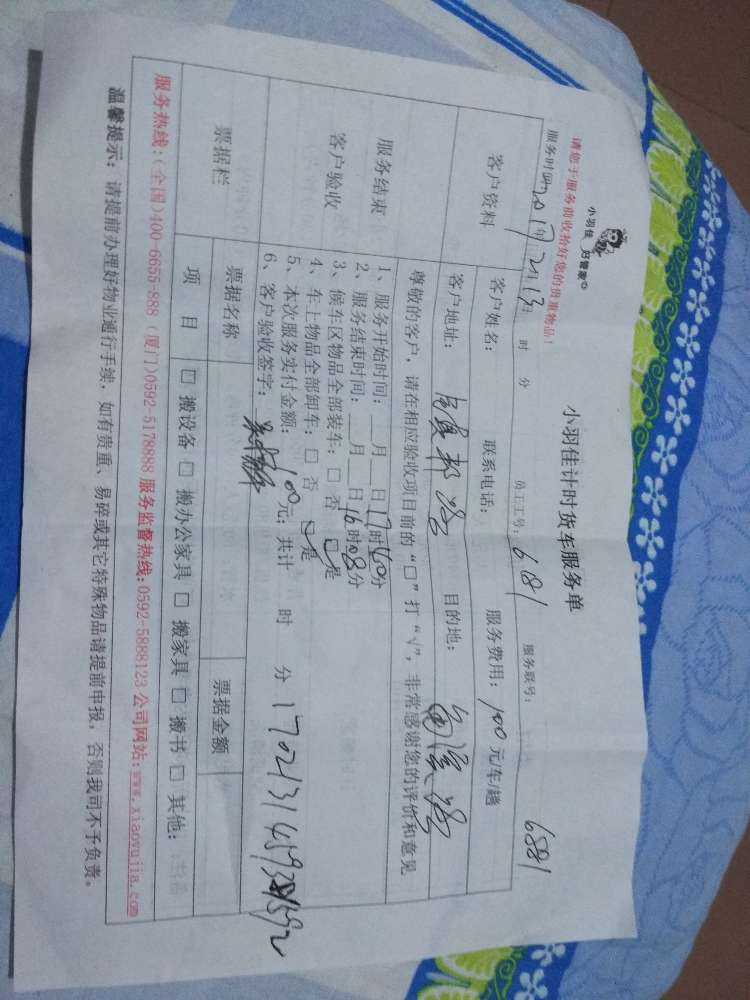 小羽佳 好管家
请您于服务前收拾好您的贵重物品！
小羽佳计时货车服务单
服务时间2017年2月13日 时 分 员工工号：681 服务联号： 6881
客户资料 客户姓名： 联系电话： 服务费用：100元/车/趟
客户地址： 目的地：
尊敬的客户，请在相应验收项目前的“□”打“√”，非常感谢您的评价和意见
服务结束
客户验收
1、服务开始时间：__月__日17时40分
2、服务结束时间：__月__日16时08分
3、候车区物品全部装车：□ 否 □是
4、车上物品全部卸车：□ 否 □是
5、本次服务实付金额：100元；共计 时 分
6、客户验收签字：
票据栏 票据名称 票据金额
项 目 □ 搬设备 □ 搬办公家具 □ 搬家具 □ 搬书 □ 其他：
服务热线：（全国）400-6655-888（厦门）0592-5178888 服务监督热线：0592-5888123 公司网站：www.xiaoyujia.com
温馨提示：请提前办理好物业通行手续，如有贵重、易碎或其它特殊物品请提前申报，否则我司不予负责。